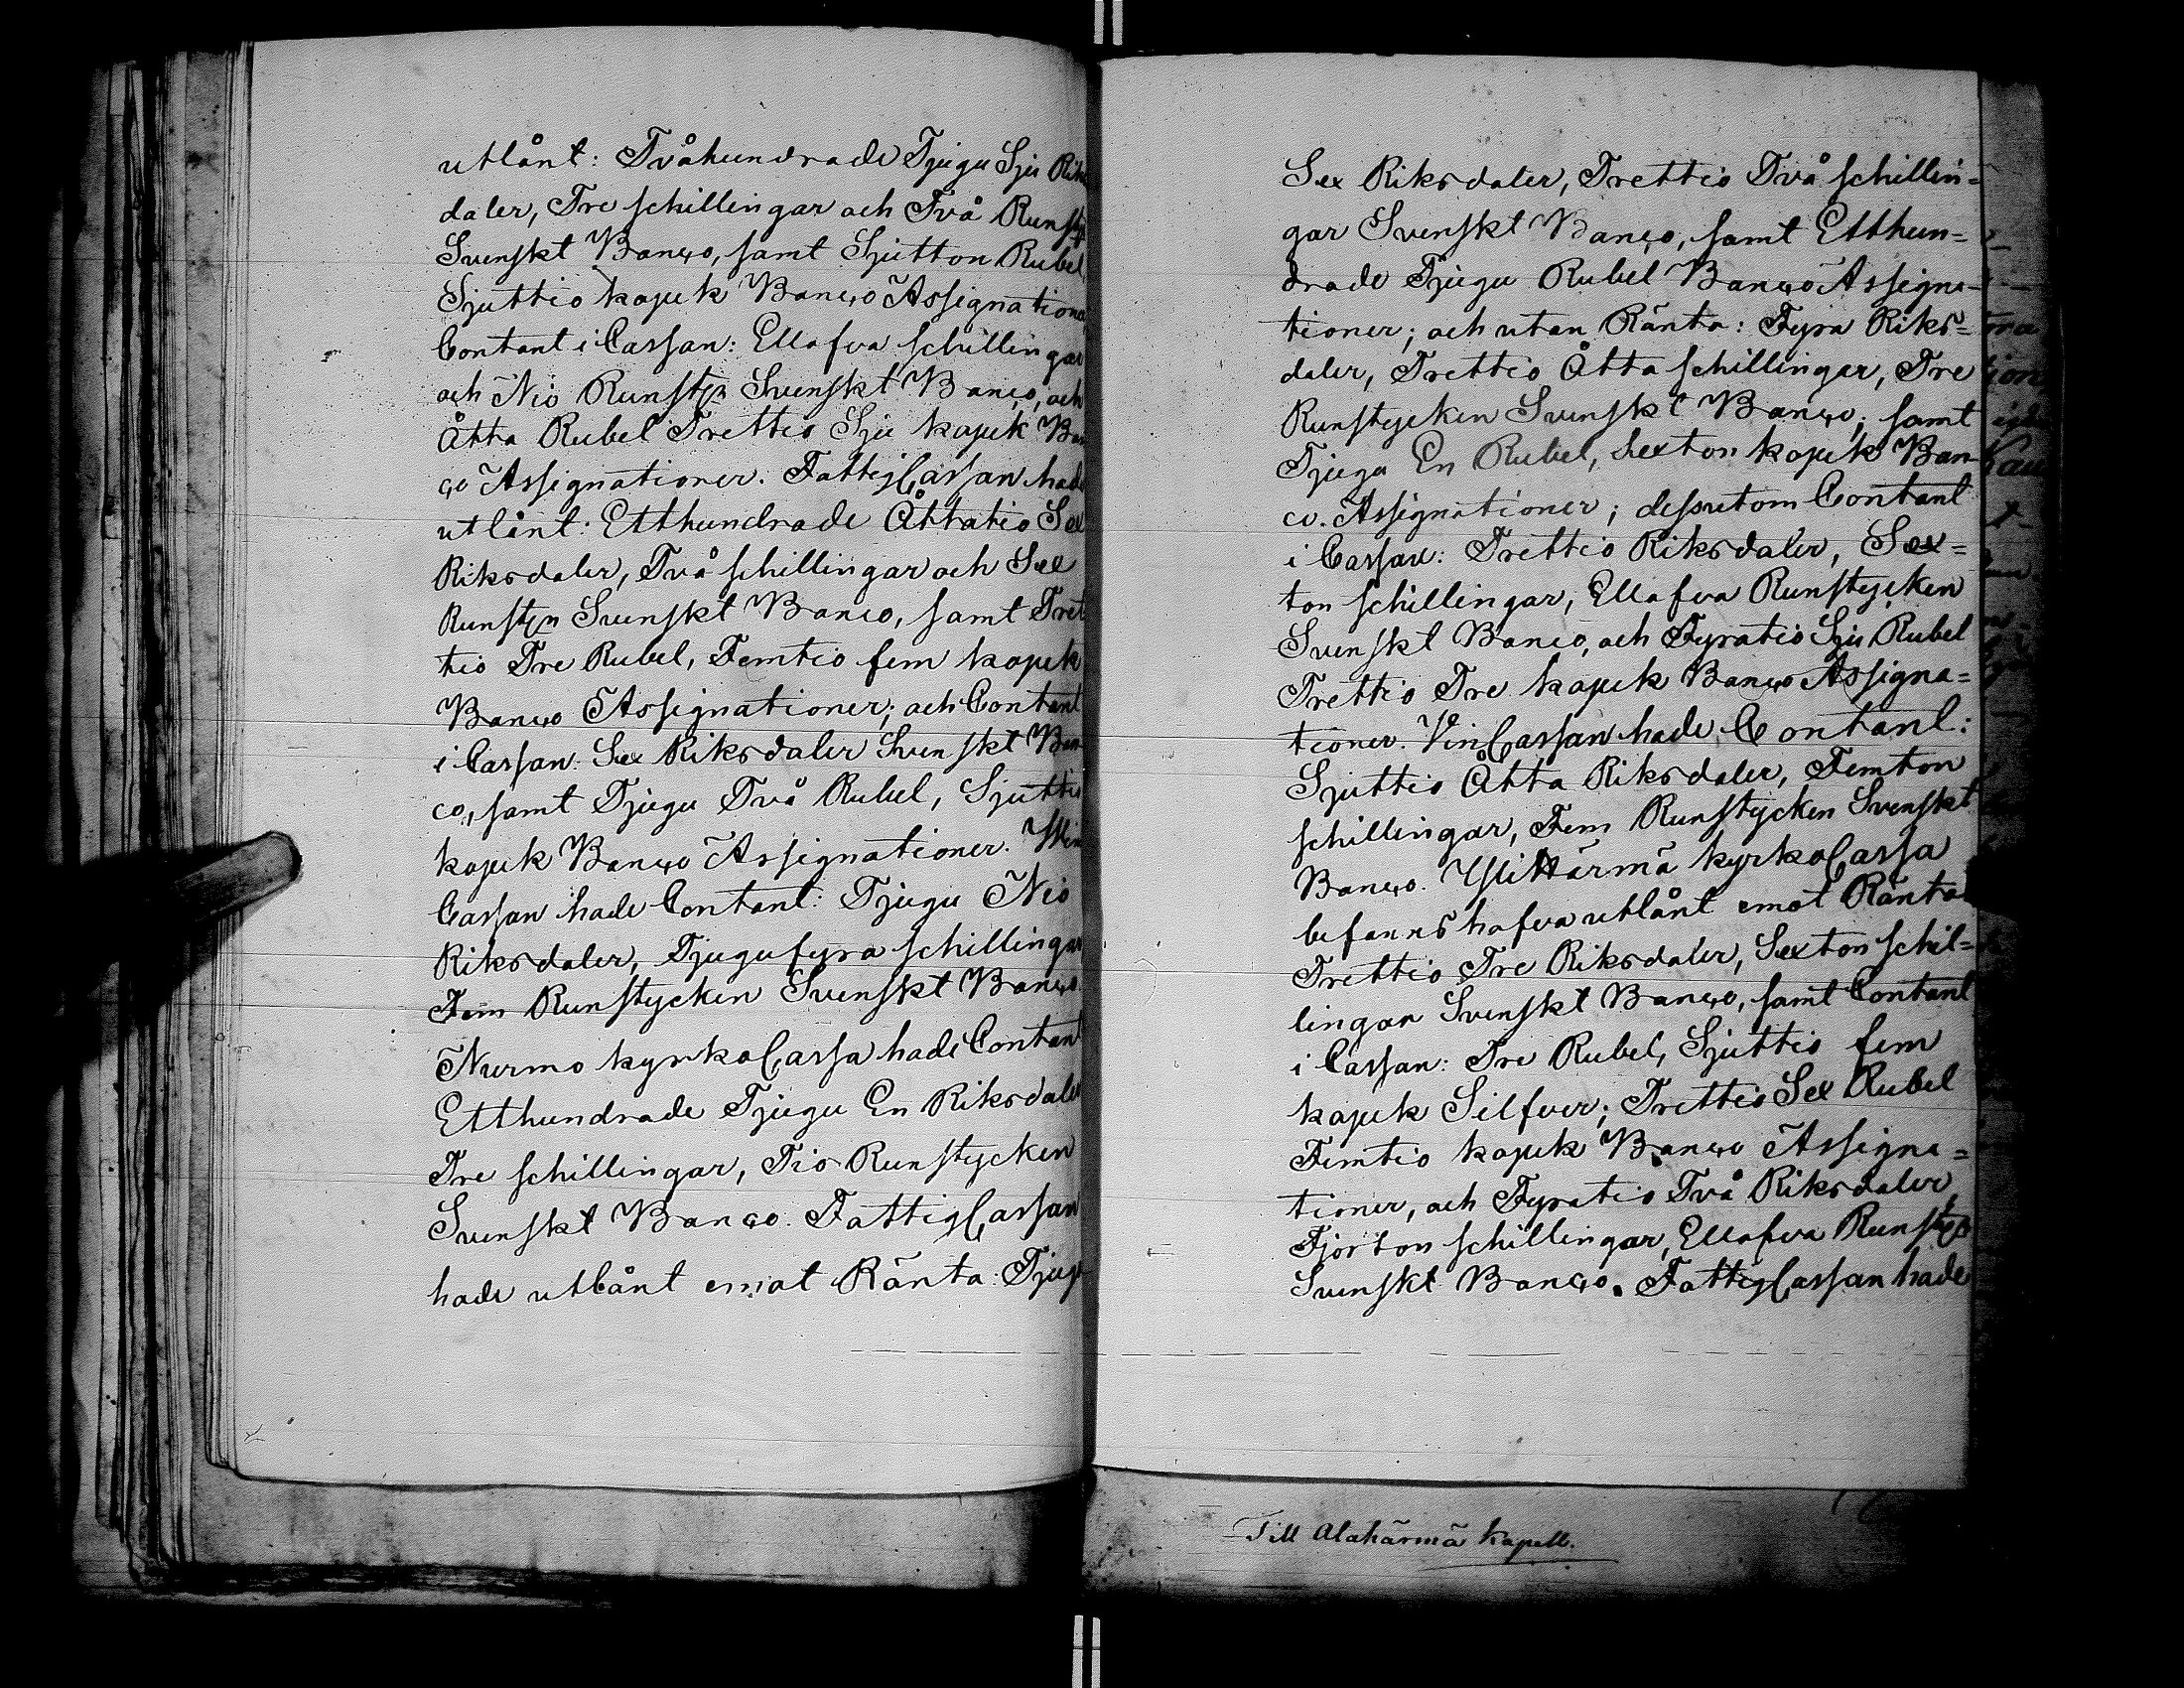 utlånt: Tvåhundrade Tjugu Sju Riks
daler, Tre schillingar och Två Runst:
Svenskt Banco, samt Sjutton Rubel,
Sjuttio kopek Banco Assignationer
Contant i Cassan: Ellafva schillingar
och Nio Runst:n Svenskt Banco, och
Åtta Rubel Trettio Sju kopek Ban
co Assignationer. FattigCassan hade
utlånt: Etthundrade Åttatio Sex
Riksdaler, Två schillingar och Sex
Runst:n Svenskt Banco, samt Tret
tio Tre Rubel, Femtio fem kopek
Banco Assignationer; och Contant
i Cassan: Sex Riksdaler Svenskt Ban
co, samt Tjugu Två Rubel, Sjuttio
kopek Banco Assignationer.
Cassan hade Contant: Tjugu Nio
Riksdaler, Tjugufyra schillingar
Fem Runstycken Svenskt Banco.
Nurmo kyrkoCassa hade Contant
Etthundrade Tjugu En Riksdaler
Tre schillingar, Tio Runstycken
Svenskt Banco. FattigCassan
hade utlånt emot Ränta: Tjugu
Sex Riksdaler, Trettio Två schillin=
gar Svenskt Banco, samt Etthun=
drade Tjugu Rubel Banco Assigna-
tioner; och utan Ränta: Fyra Riks=
daler, Trettio Åtta schillingar, Tre
Runstycken Svenskt Banco; samt
Tjugu En Rubel, Sexton kopek Ban-
co. Assignationer; dessutom Contant
i Cassan: Trettio Riksdaler, Sex=
ton schillingar, Ellafva Runstycken
Svenskt Banco, och Fyratio Sju Rubel
Trettio Tre kopek Banco Assigna=
tioner. VinCassan hade Contant:
Sjuttio Åtta Riksdaler, Femton
schillingar, Fem Runstycken Svenskt
Banco. Ylihärmä kyrkoCassa
befanns hafva utlånt emot Ränta
Trettio Tre Riksdaler, Sexton schil=
lingar Svenskt Banco, samt Contant
i Cassan: Tre Rubel, Sjuttio fem
kopek Silfver; Trettio Sex Rubel
Femtio kopek Banco Assigna=
tioner, och Fyratio Två Riksdaler,
Fjorton schillingar, Ellafva Runst:n
Svenskt Banco. FattigCassan hade
Till Alahärmä Kapell.